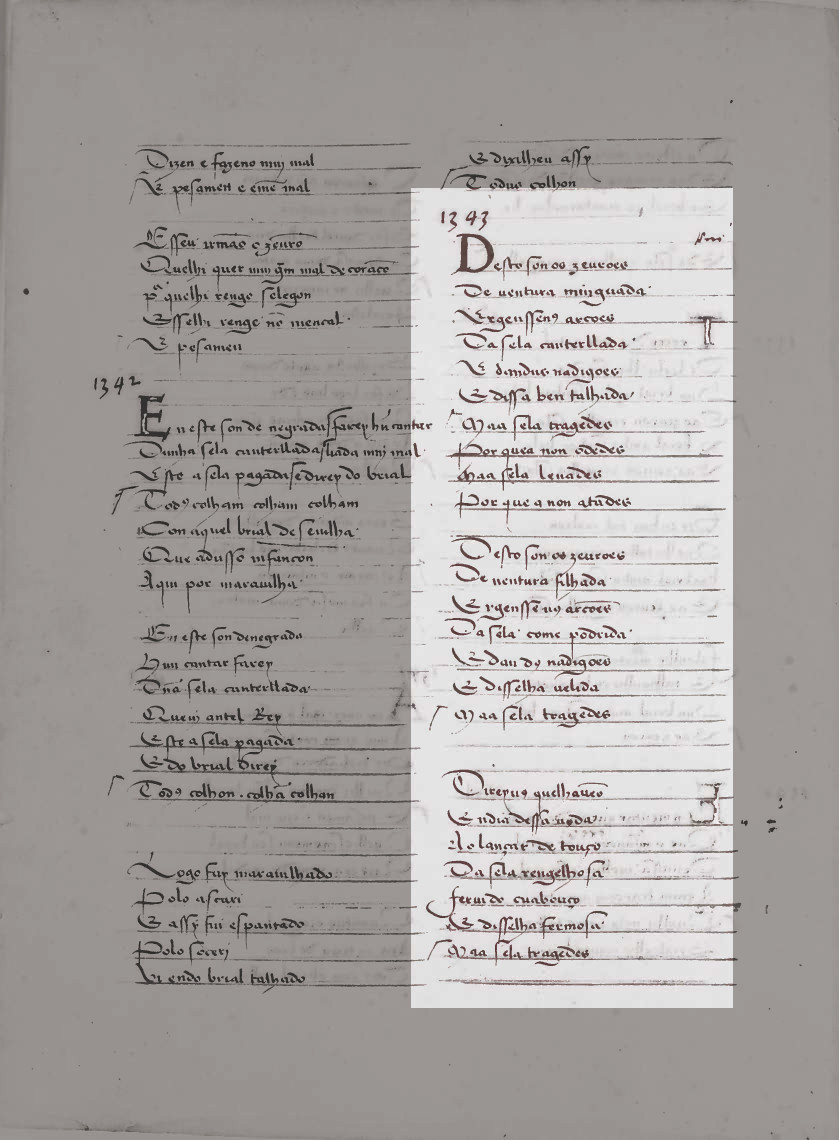 Dizen e fazeno mui mal
E pesamen e eme mal
Esseu irmaão ezeuro
Quelhi quer mui gm mal de coraço
pa quelhi renge selegon
Esselhi renge nō mencal
E pesameu
1342
En este son de negrada farey hũ cantar
Dunha sela canterllada liada muj mal
Este a sela pagada e direy do brial
Todꝯ colham colham colham
Con aquel brial de seuilha
Que adusso infançon
Aqui por marauilha
En este son denegrada
Hun cantar farey
Dūa sela canterllada
Queui antel Rey
Este a sela pagada
E do brial direy
Todꝯ colhon . colhā colhan
Logo fuy marauilhado
Polo ascari
E assy fui espantado
Polo soceri
Vi endo brial talhado
E dixilheu assy
Todus colhon
1343
Desto son os zeuroes
De uentura minguada
Ergenssenꝯ arcoes
Da sela canterllada
E dandus nadigoes
E dissa ben talhada
Maa sela tragedes
Por quea non odedes
Maa sela leuades
Por que a non atades
I
Desto son os zeuroes
De uentura filhada
Ergenssē uꝯ arcoēs
Da sela come podrida
E dau dꝯ nadigoēs
E disselha uelida
Maa sela tragedes
Direyuꝯ quelhaueo
En dia dessa uoda
Ao lançar de touço
Da sela rengelhosa
feruido cuabouço
E disselha fermosa
Maa sela tragedes
3